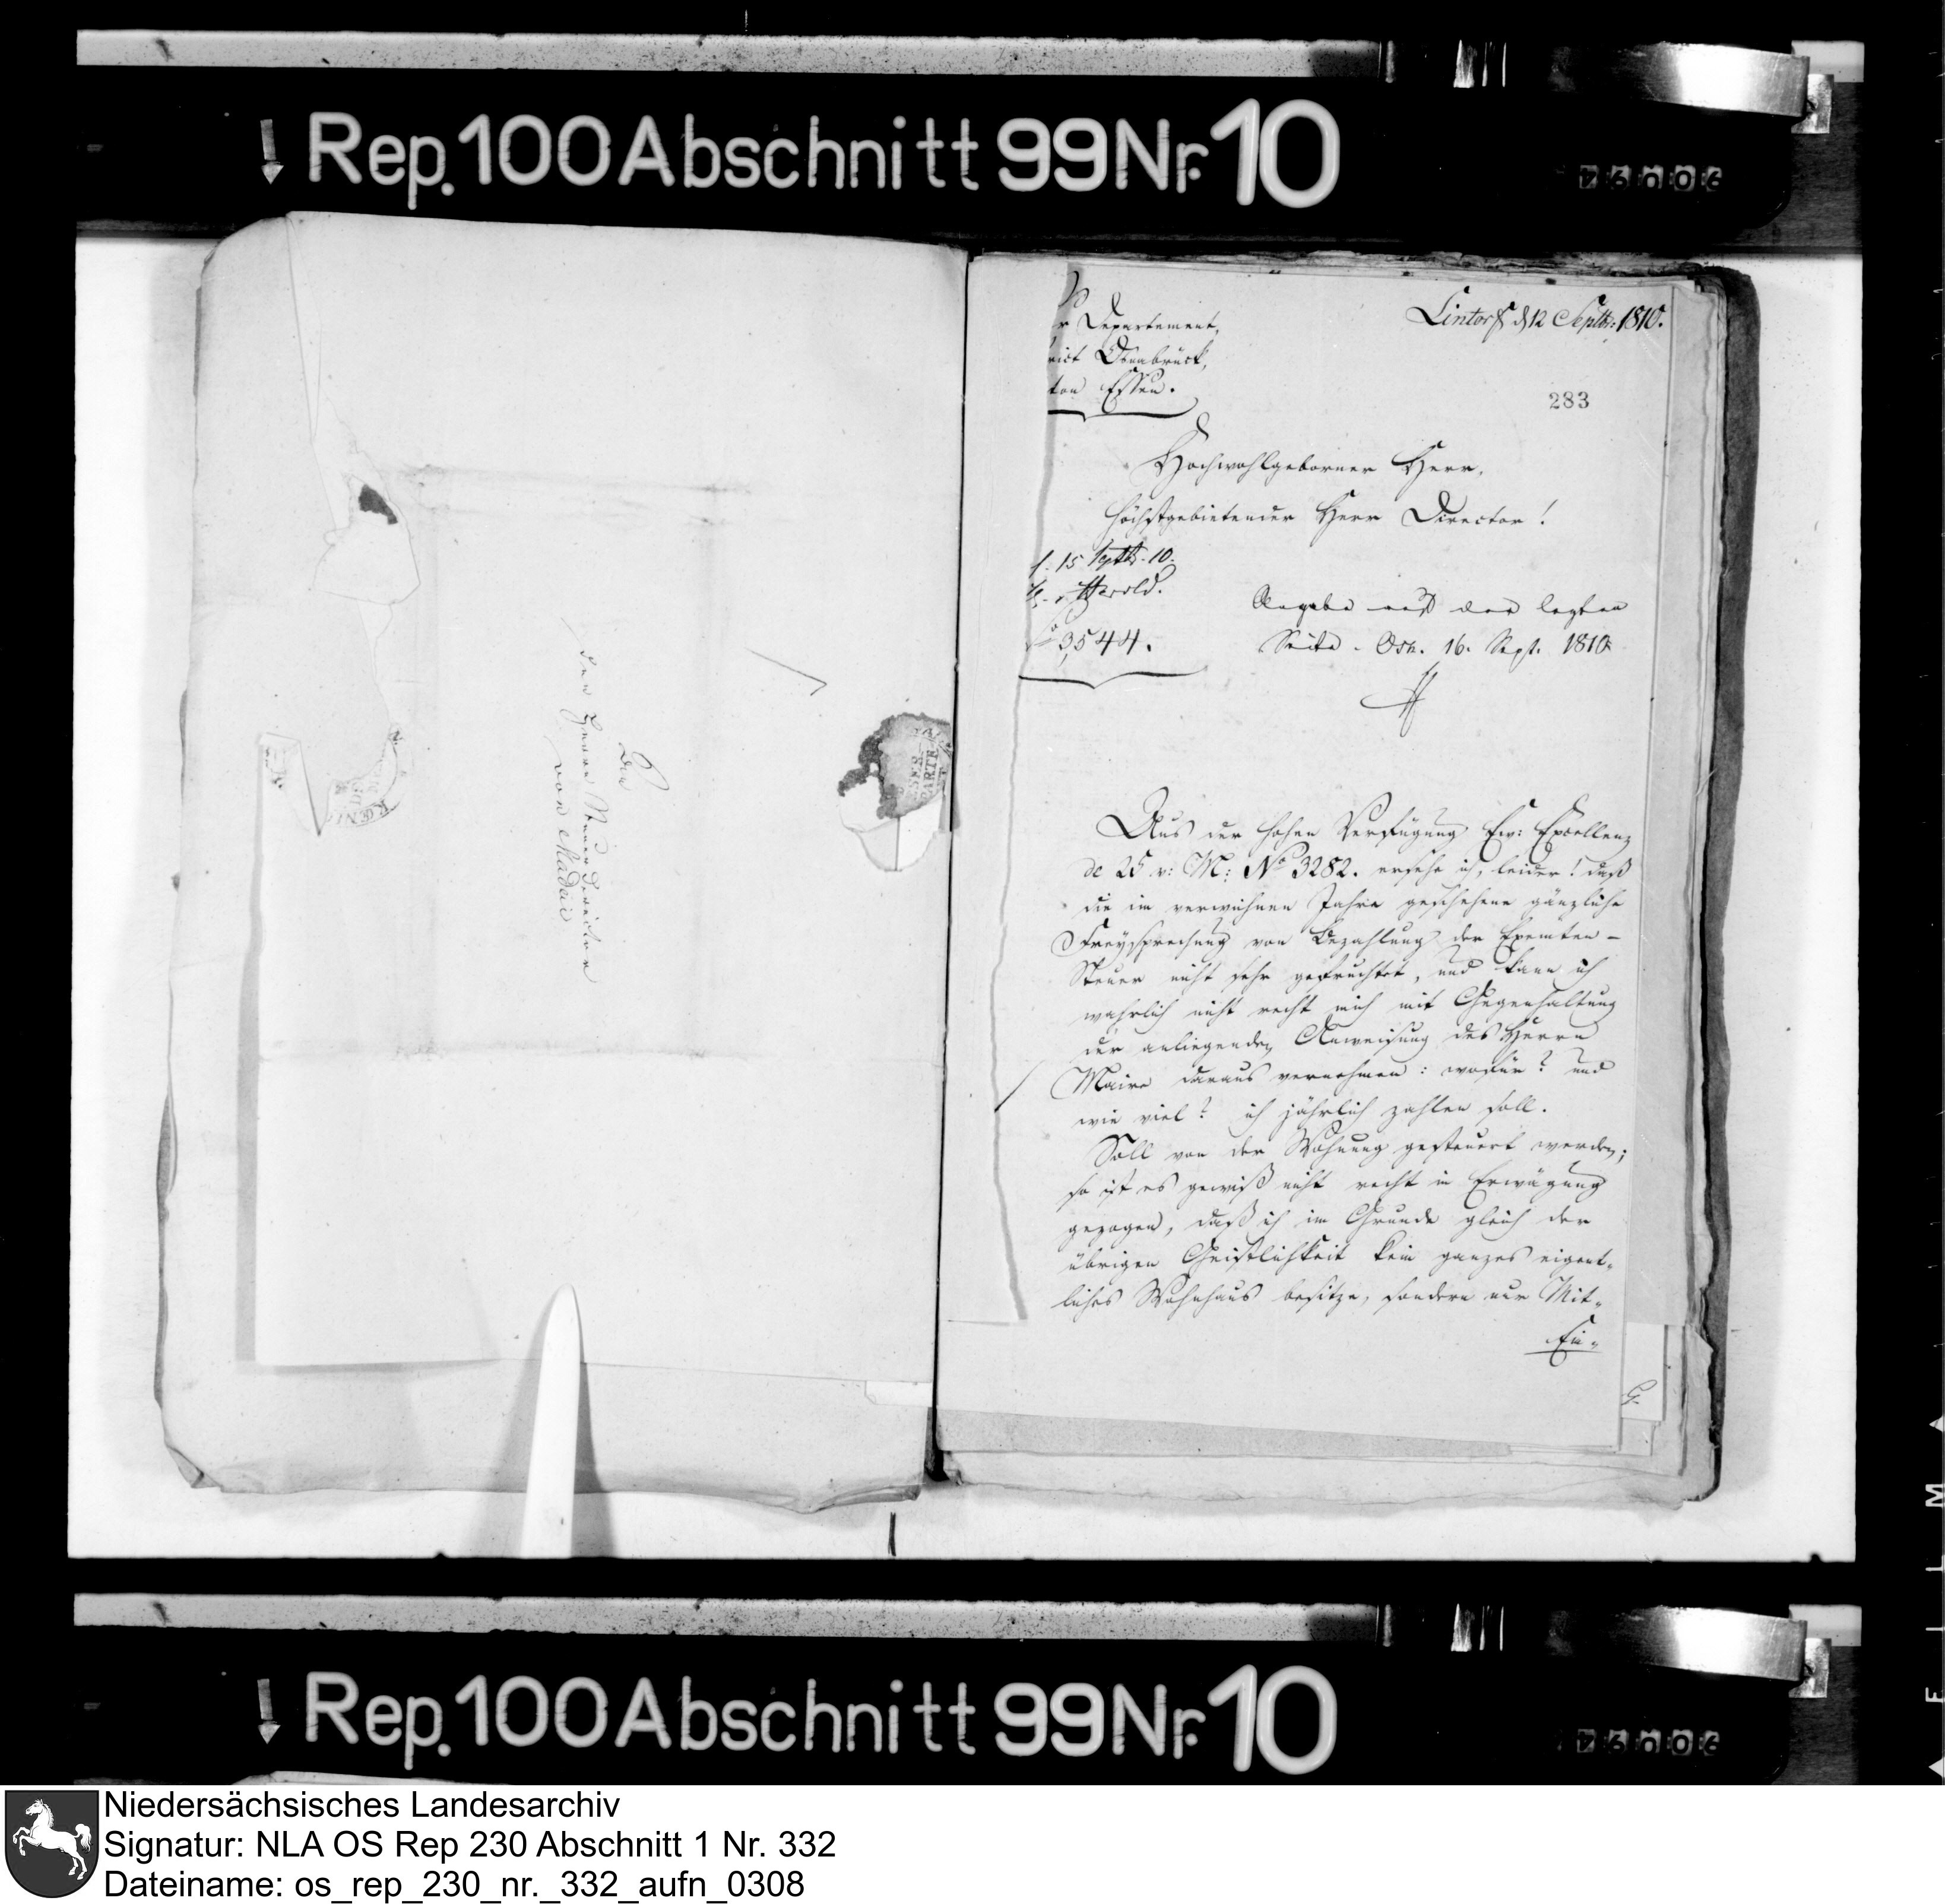 Rep. 100 Abschnitt 99 Nr. 10
Den
Herrn Steuer Director
von Madai
r Departement,
rict Osnabrück,
ton Essen.
Lintorf d 12 Septb: 1810.
283
Hochwohlgeborner Herr,
Höchstgebietender Herr Director!
15 Septb. 10.
Herold.
3544.
Angabe auf der lezten
Seite. Osn. 16. Sept. 1810
Aus der hohen Verfügung Ew: Excellenz
de 25 v: M: No 3282. ersehe ich, leider! daß
die im verwichnen Jahre geschehene gänzliche
Freysprechung von Bezahlung der Exemten-
Steuer nicht sehr gefruchtet, und kann ich
wahrlich nicht recht mich mit Gegenhaltung
der anliegenden Anweisung des Herrn
Maire daraus vernehmen: wofür? und
wie viel? ich jährlich zahlen soll.
Soll von der Wohnung gesteuert werden;
so ist es gewiß nicht recht in Erwägung
gezogen, daß ich im Grunde gleich der
übrigen Geistlichkeit kein ganzes eigent-
liches Wohnhaus besitze, sondern nur Mit-
Ein-
Rep. 100 Abschnitt 99 Nr. 10
Niedersächsisches Landesarchiv
Signatur: NLA OS Rep 230 Abschnitt 1 Nr. 332
Dateiname: os_rep_230_nr._332_aufn_0308